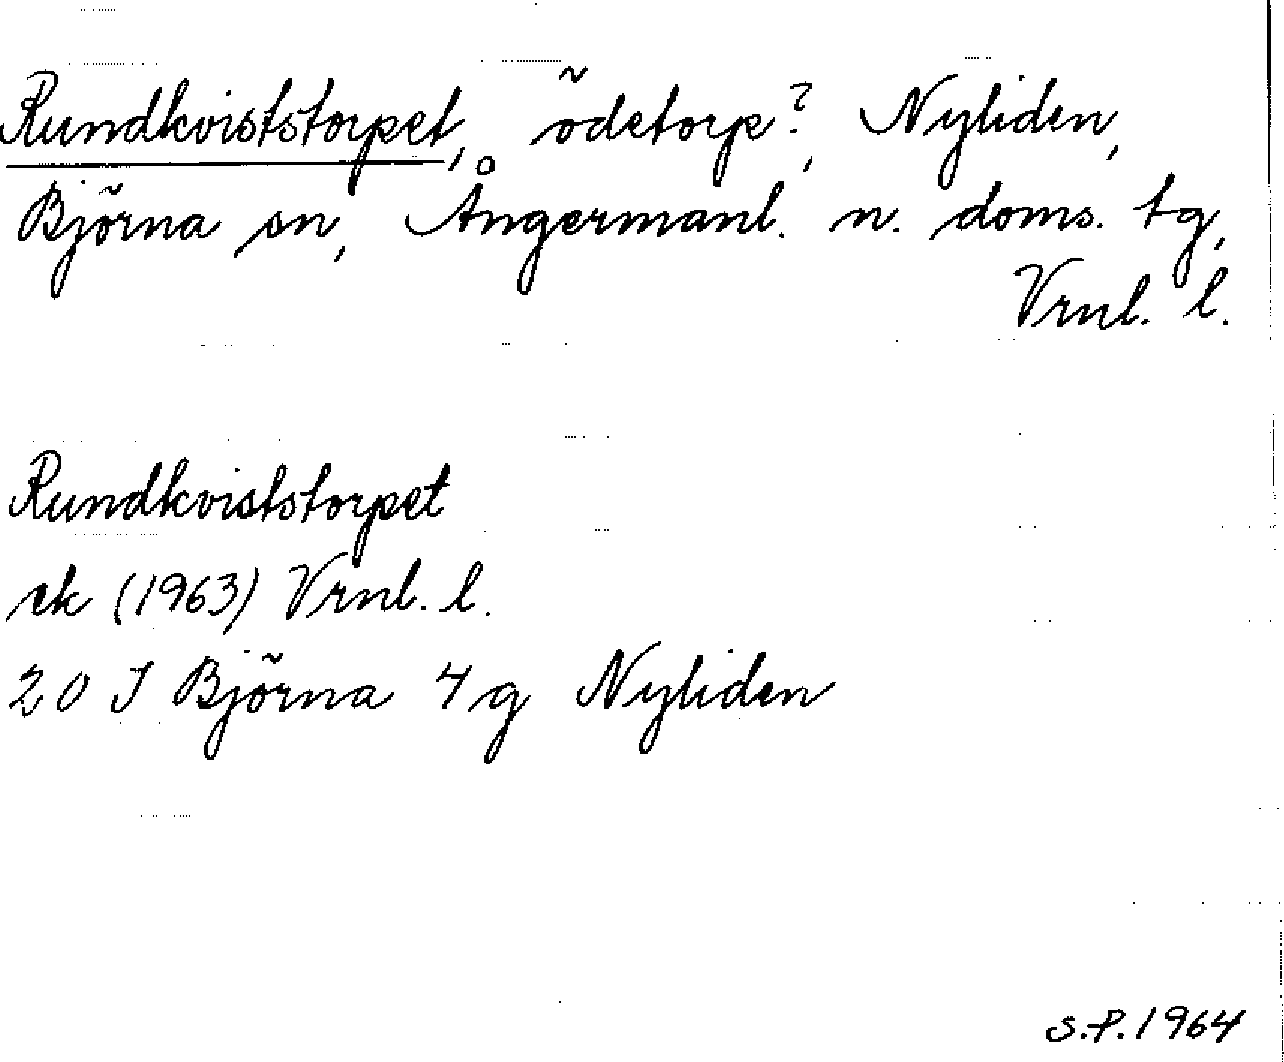 Rundkviststorpet, ödetorp?, Nyliden,
Björna sn, Ångermanl. n. doms. tg,
Vrnl. l.
Rundkviststorpet
ek (1963) Vrnl. l.
20 J Björna 4g Nyliden
S.P. 1964